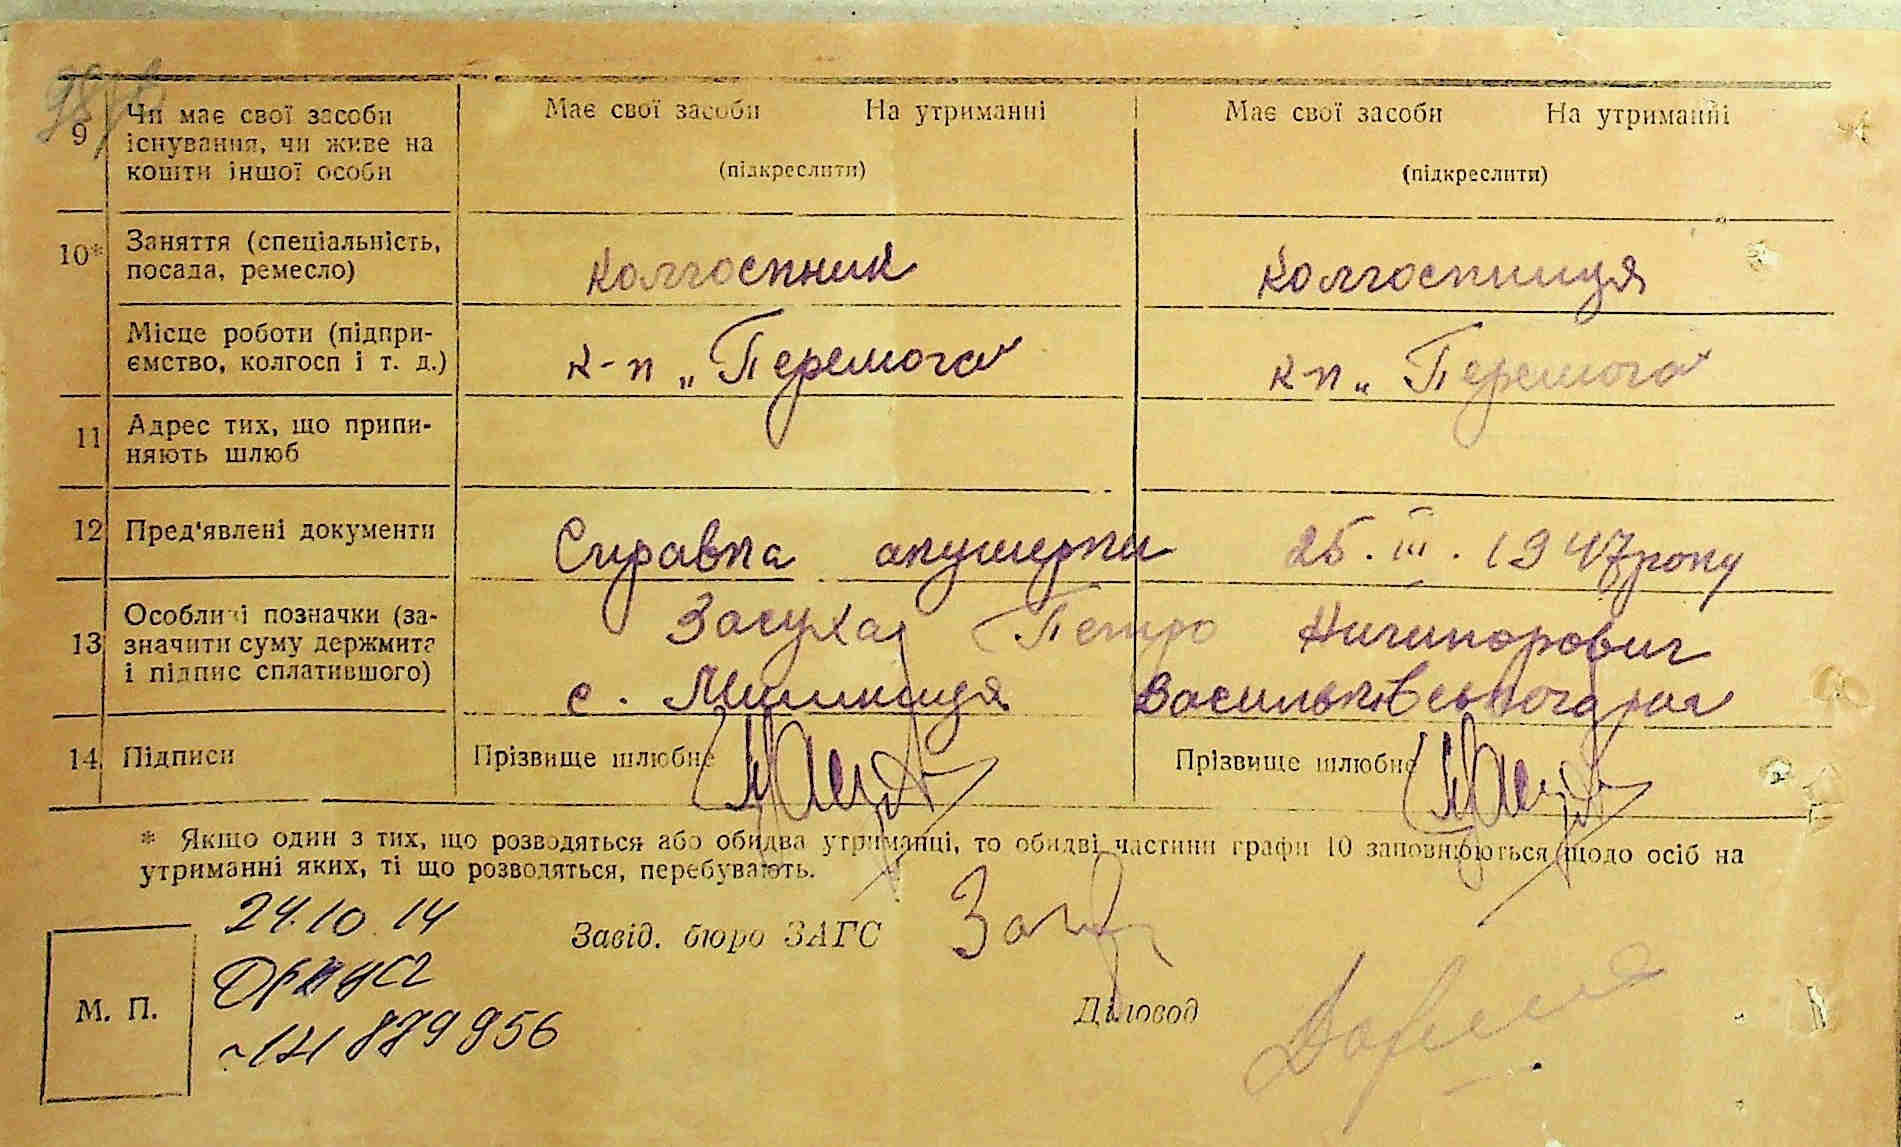 9 Чи має свої засоби існування, чи живе на кошти іншої особи
Має свої засоби На утриманні
(підкреслити)
Має свої засоби На утриманні
(підкреслити)
10* Заняття (спеціальність, посада, ремесло)
колгоспник
колгоспниця
Місце роботи (підпри-
ємство, колгосп і т. д.)
к-п „Перемога"
к-п „Перемога"
11 Адрес тих, що припи-
няють шлюб
12 Пред'явлені документи
Справка акушерки 25. III. 1947 року
13 Особливі позначки (за-
значити суму держмита
і підпис сплатившого)
Засуха Петро Ничипорович
с. Митниця Васильківського р-на
14 Підписи
Прізвище шлюбне
Прізвище шлюбне
* Якщо один з тих, що розводяться або обидва утриманці, то обидві частини графи 10 заповнюються щодо осіб на
утриманні яких, ті що розводяться, перебувають.
24.10.14
879956
М. П.
Завід. бюро ЗАГС
Діловод